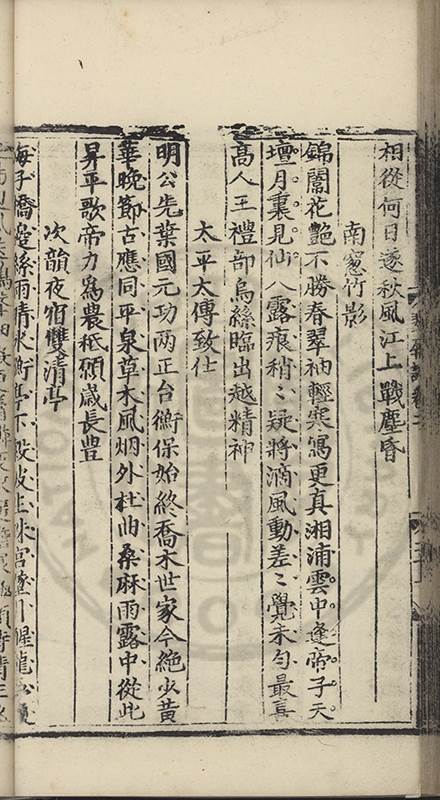 相從何日遂秋風江上戰塵昏
南窓竹影
錦闈花艷不勝春翠袖輕寒寫更真湘浦雲中逢帝子天
壇月裏見仙人露痕稍〻疑將滴風動差〻覺未勻最喜
高人王禮部烏絲臨出越精神
太平太傳致仕
明公先葉國元功两正台衡保始終喬木世家今絶少黄
華晚節古應同平泉草木風烟外杜曲桑麻雨露中從此
昇平歌帝力為農秪願歳長豊
次韻夜宿雙清亭
海子橋邉絲雨晴氷